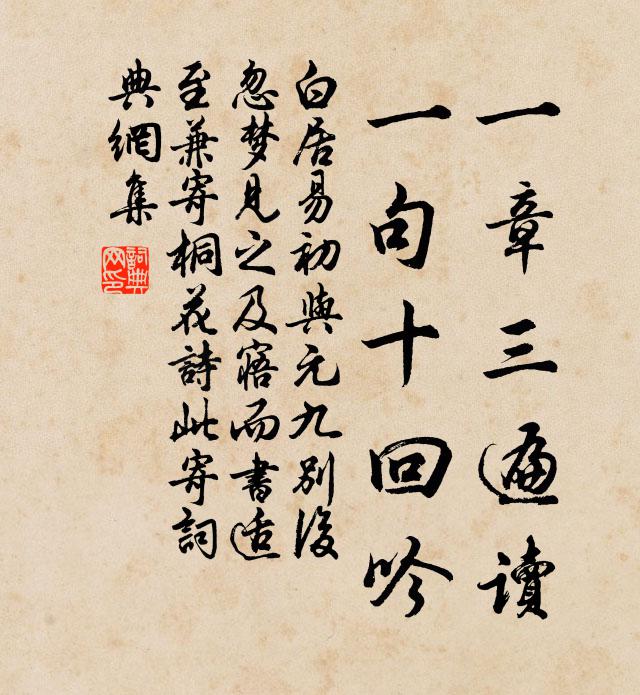 一章三遍讀
一句十回吟
白居易初與元九別後
忽梦見之及寤而書适
至兼寄桐花詩此寄詞
典網集
詞典网印